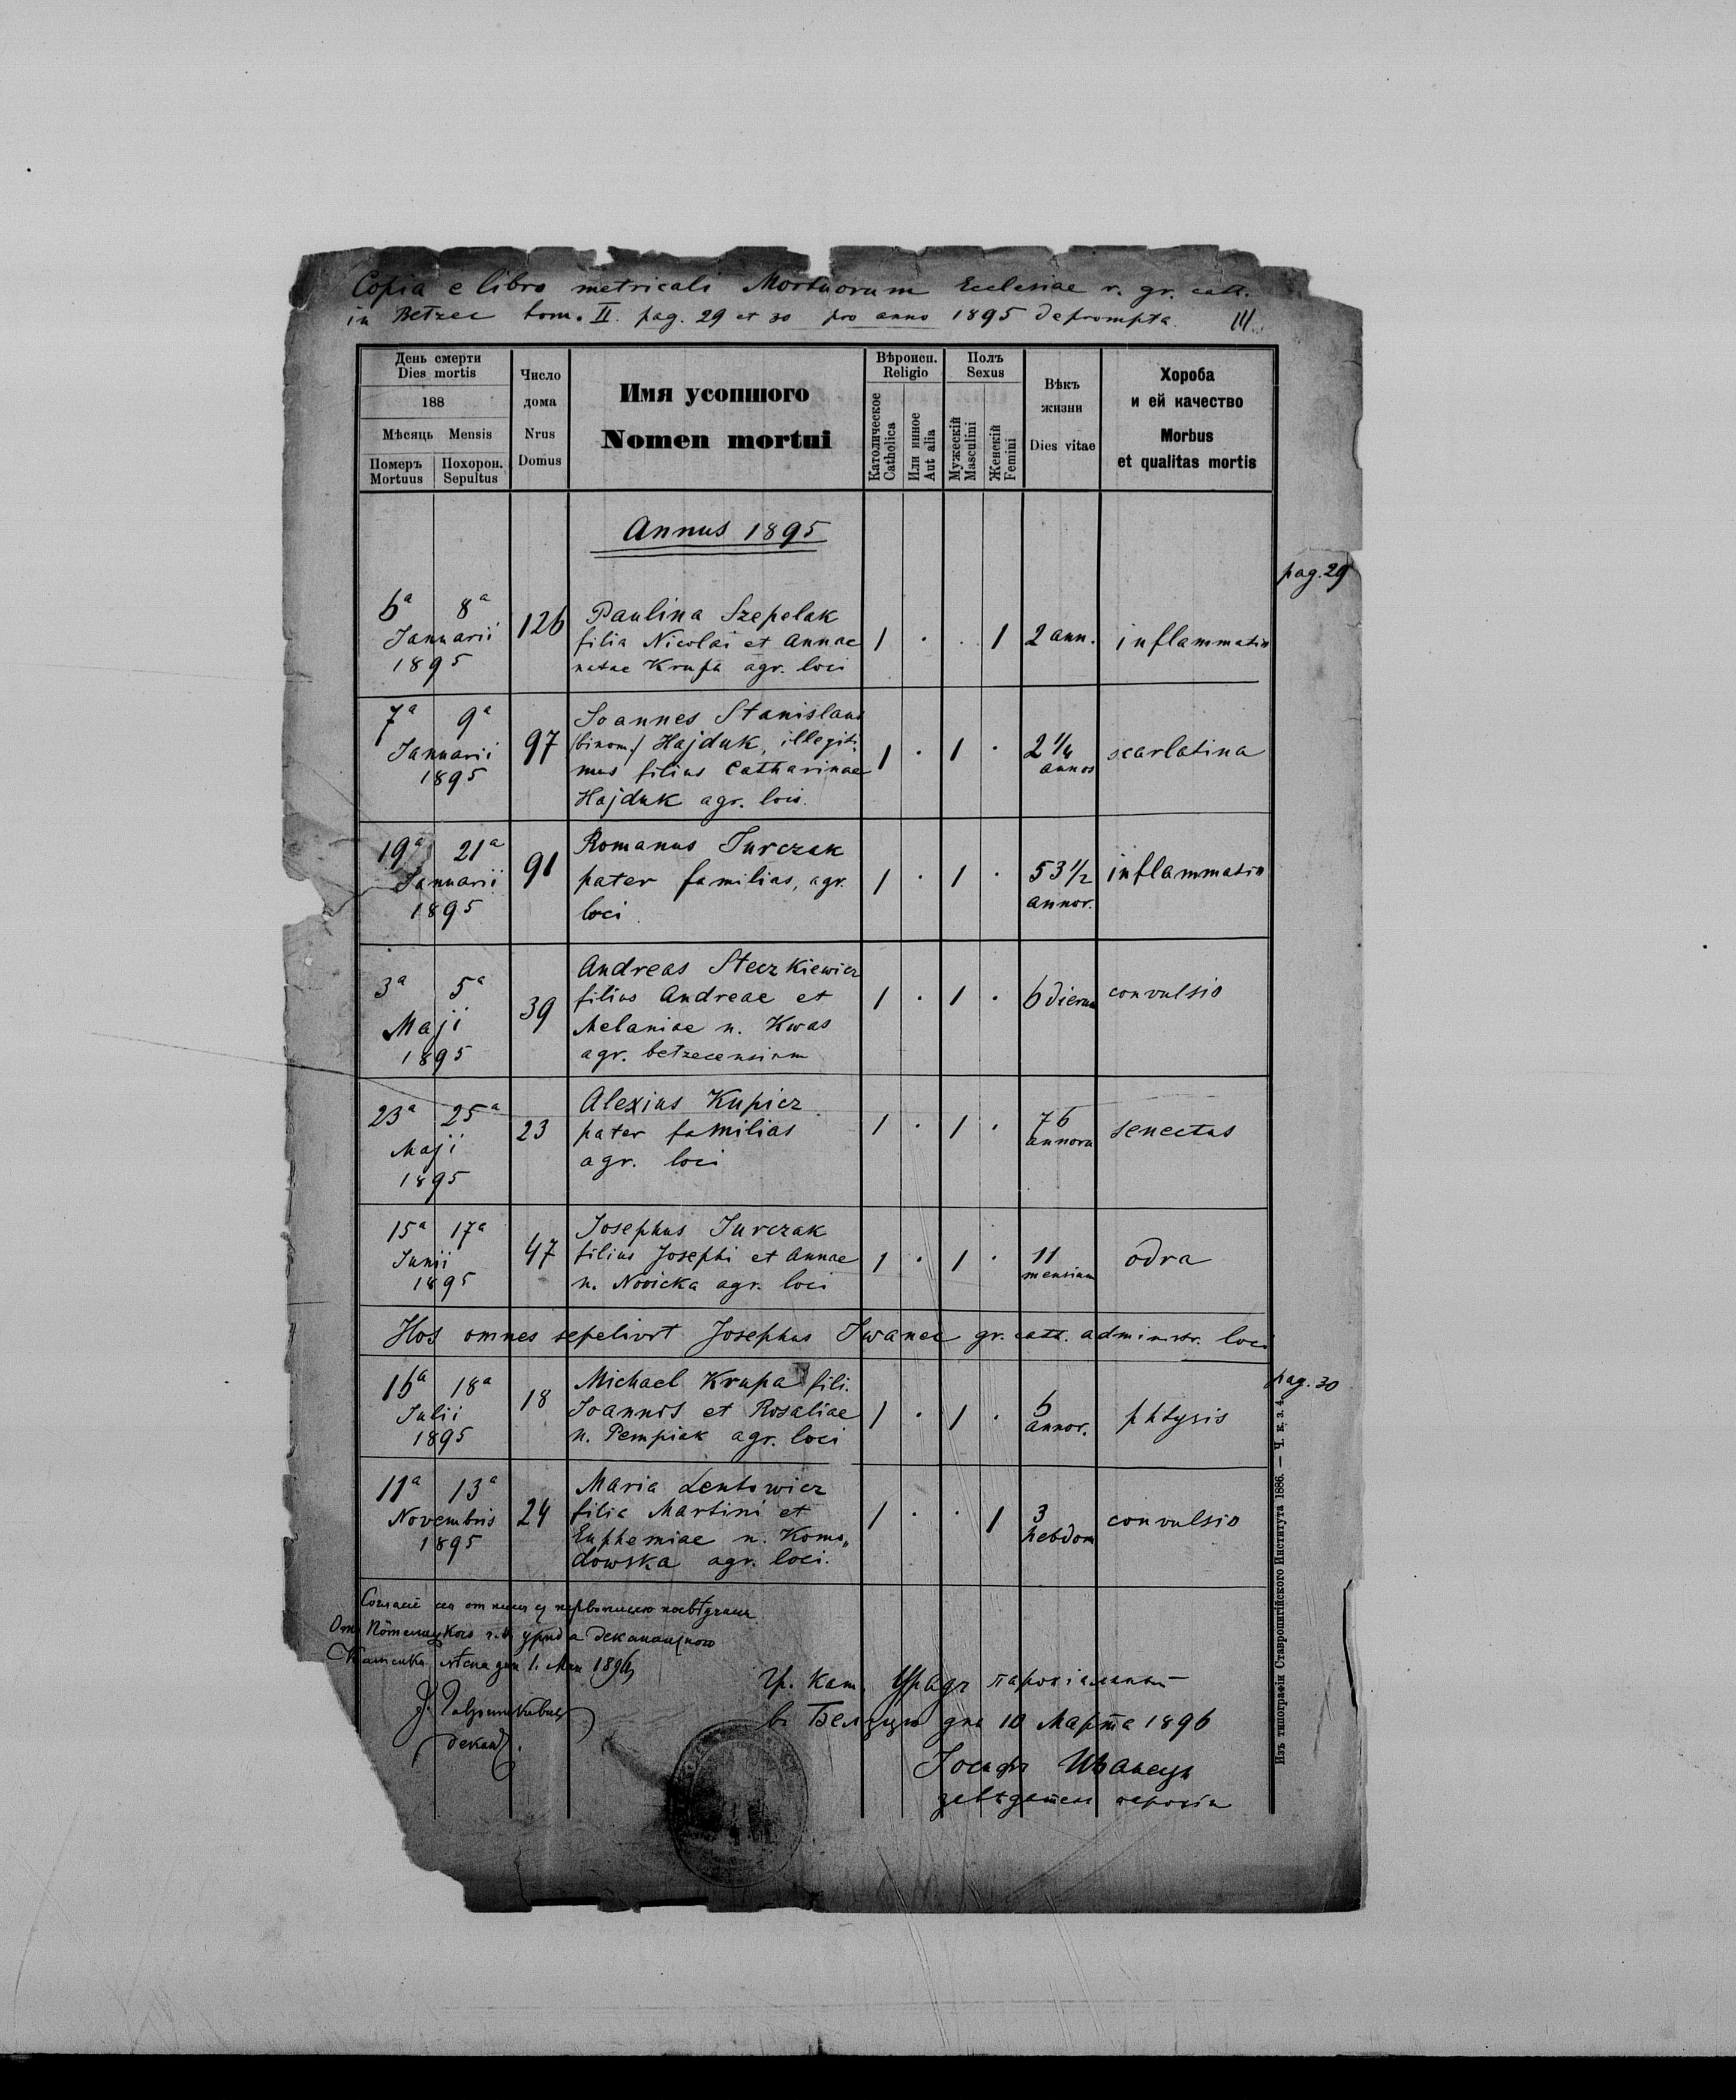 Copia e libro metricali Mortuorum Ecclesiae r. gr. cath.
in Bełzec tom. II. pag. 29 et 30 pro anno 1895 deprompta. III.
День смерти
Dies mortis
188
Мѣсяць Mensis
Померъ Похорон.
Mortuus Sepultus
Число
дома
Nrus
Domus
Имя усопшого
Nomen mortui
Вѣроисп.
Religio
Католическое
Catholica
Или инное
Aut alia
Полъ
Sexus
Мужескій
Masculini
Женскій
Femini
Вѣкъ
жизни
Dies vitae
Хороба
и ей качество
Morbus
et qualitas mortis
Annus 1895
pag. 29
6ª 8ª
Januarii
1895
126
Paulina Szepelak
filia Nicolai et Annae
natae Krupa agr. loci
1 . . 1
2 ann.
inflammatio
7ª 9ª
Januarii
1895
97
Joannes Stanislaus
/binom./ Hajduk, illegiti-
mus filius Catharinae
Hajduk agr. loci.
1 . 1 .
2 1/4
annos
scarlatina
19ª 21ª
Januarii
1895
91
Romanus Jurczak
pater familias, agr.
loci
1 . 1 .
53 1/2
annor.
inflammatio
3ª 5ª
Maji
1895
39
Andreas Steczkiewicz
filius Andreae et
Melaniae n. Kwas
agr. bełzecensium
1 . 1 .
6 dierum
convulsio
23ª 25ª
Maji
1895
23
Alexius Kupicz
pater familias
agr. loci
1 . 1 .
76
annoru
senectus
15ª 17ª
Junii
1895
47
Josephus Jurczak
filius Josephi et Annae
n. Nowicka agr. loci
1 . 1 .
11
mensium
odra
Hos omnes sepelivit Josephus Iwanec gr. cath. administr. loci
pag. 30
16ª 18ª
Julii
1895
18
Michael Krupa fili.
Joannis et Rosaliae
n. Pempiak agr. loci
1 . 1 .
6
annor.
phtysis
11ª 13ª
Novembris
1895
24
Maria Lentowicz
filia Martini et
Euphemiae n. Komo„
dowska agr. loci.
1 . . 1
3
hebdom
convulsio
От уряда деканального
дня 1. Мая 1896
декан.
Гр. кат. Урядъ парохіальный
в Белзци дня 10 Марта 1896
Іосифъ Иванецъ
завѣдатель парохіи
Изъ типографіи Ставропигійского Института 1886. — Ч. к. з. 4.